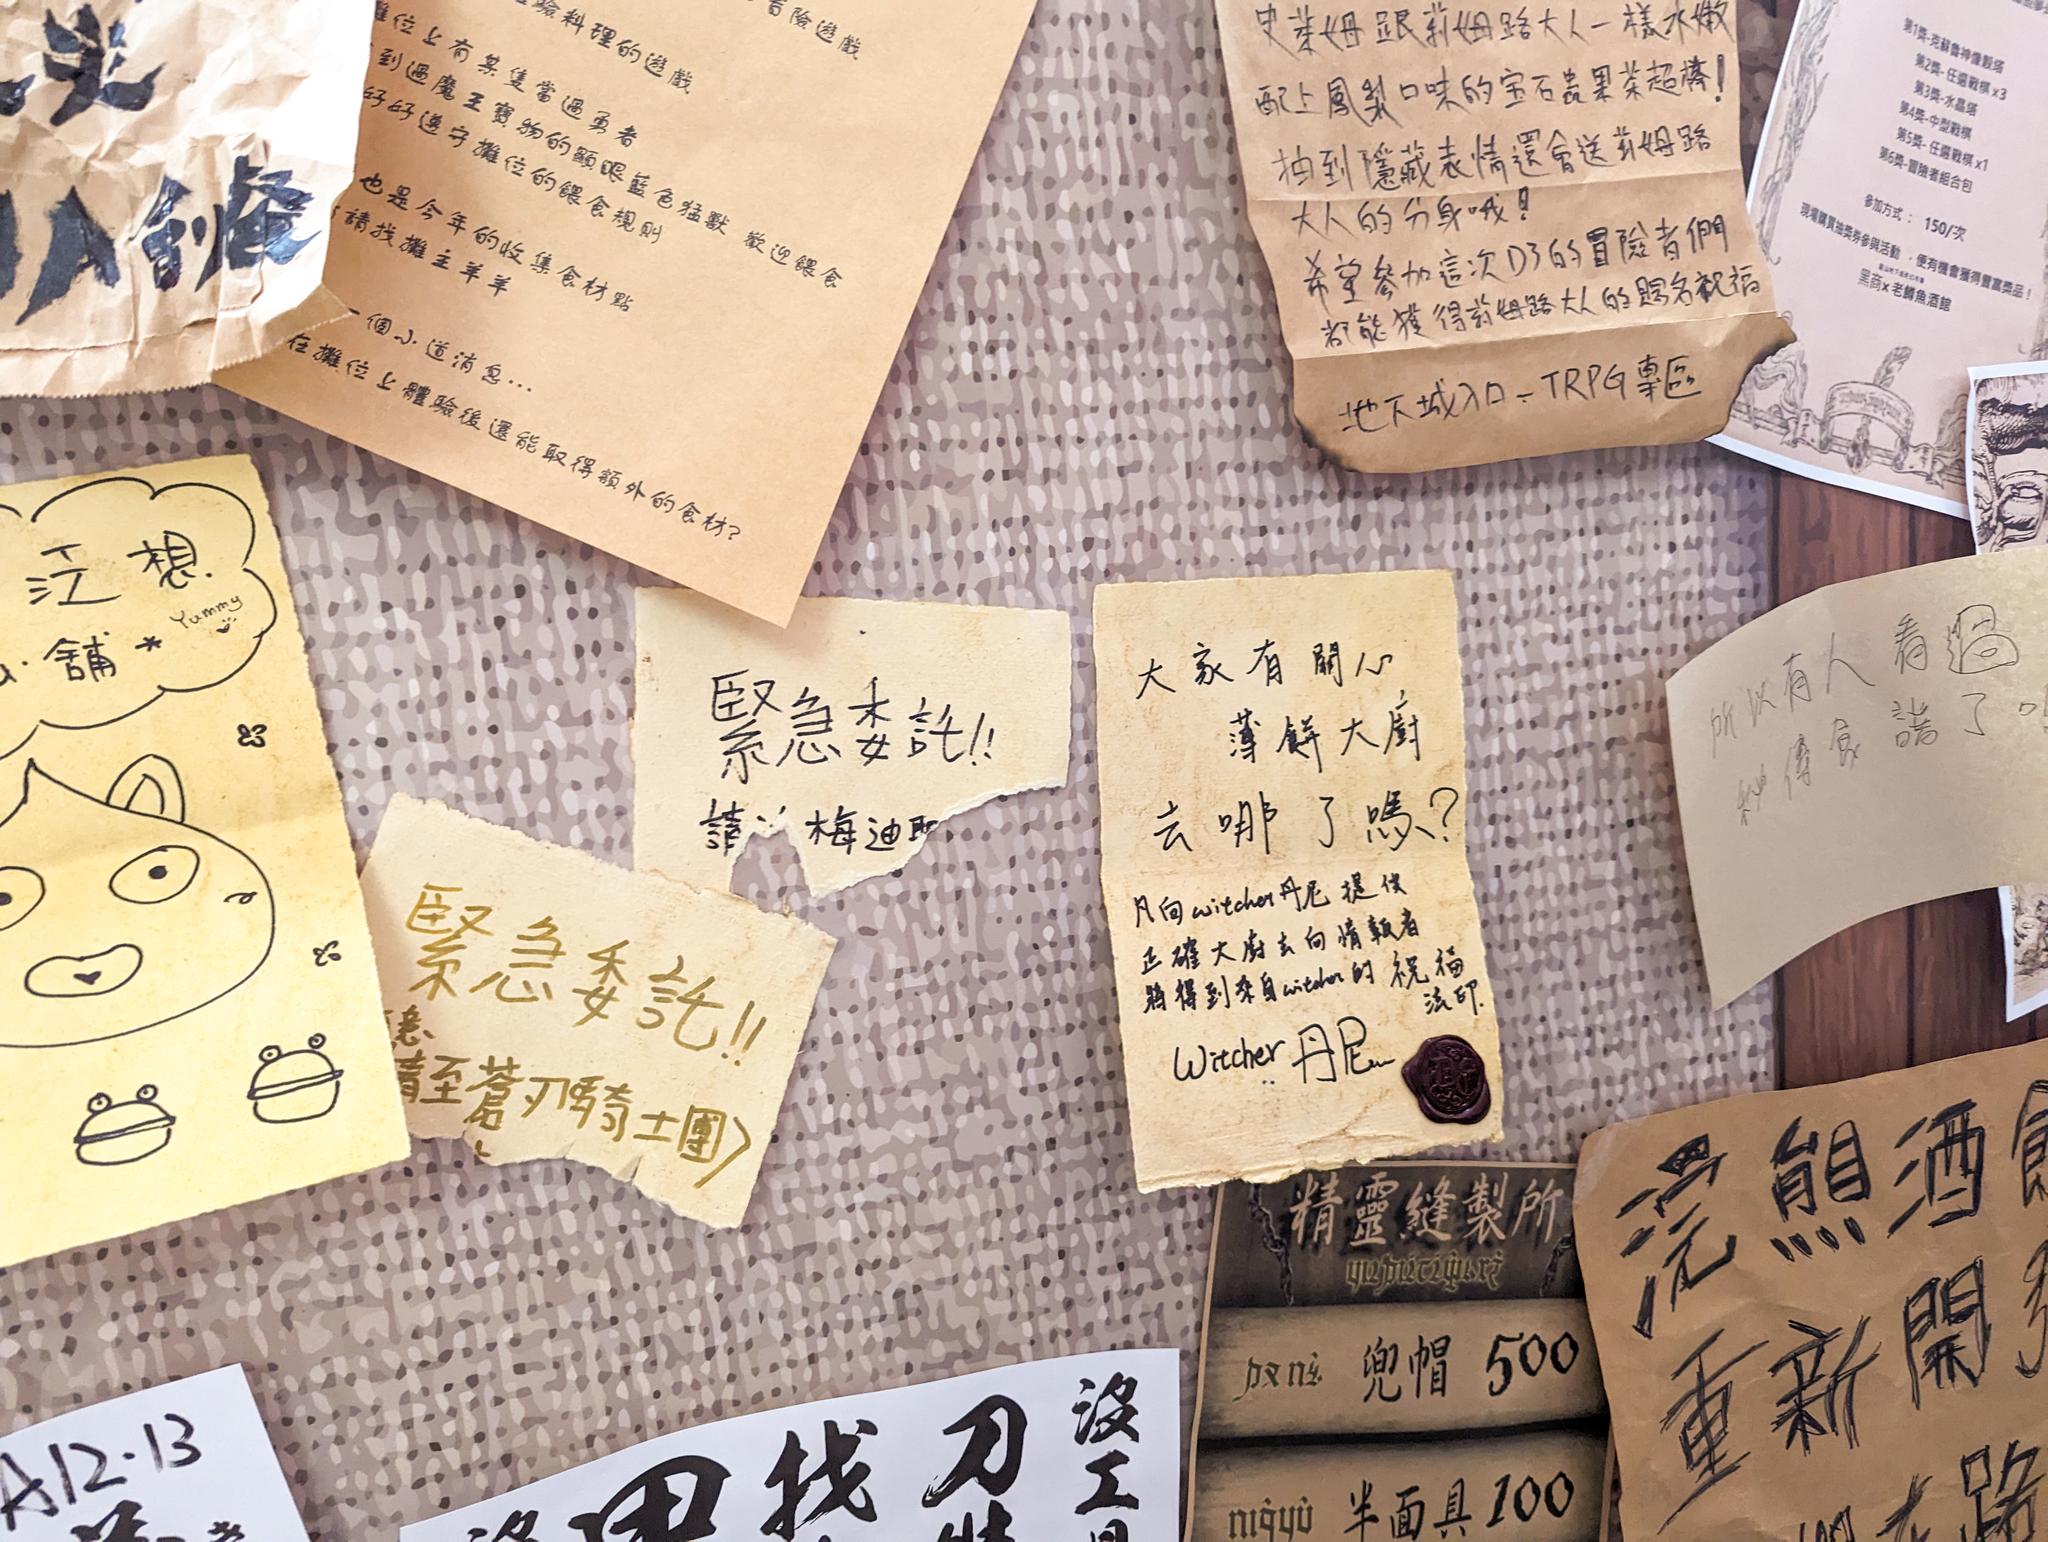 創
冒險遊戲
驗料理的遊戲
攤位上有某隻當過勇者
到過魔王寶物的顯眼藍色猛獸 歡迎餵食
好好遵守攤位的餵食規則
也是今年的收集食材點
請找攤主羊羊
一個小道消息...
在攤位上體驗後還能取得額外的食材?
史萊姆跟莉姆路大人一樣水嫩
配上鳳梨口味的宝石蟲果茶超棒!
抽到隱藏表情還會送莉姆路
大人的分身哦!
希望參加這次D3的冒險者們
都能獲得莉姆路大人的賜名祝福
地下城入口-TRPG專區
第1獎-克蘇魯神像骰塔
第2獎-任選戰棋x3
第3獎-水晶塔
第4獎-中型戰棋
第5獎-任選戰棋x1
第6獎-冒險者組合包
參加方式: 150/次
現場購買抽獎券參與活動,便有機會獲得豐富獎品!
黑商x老鱒魚酒館
江想
Yummy
舖*
緊急委託!!
請 梅迪
緊急委託!!
請至蒼刃騎士團)
大家有關心
薄餅大廚
去哪了嗎?
凡向witcher丹尼提供
正確大廚去向情報者
將得到來自witcher的祝福
法印.
Witcher 丹尼
所以有人看過
秘傳食譜了
精靈縫製所
兜帽 500
半面具 100
浣熊酒館
重新開
路
A12.13
沒工
刀
找
沒